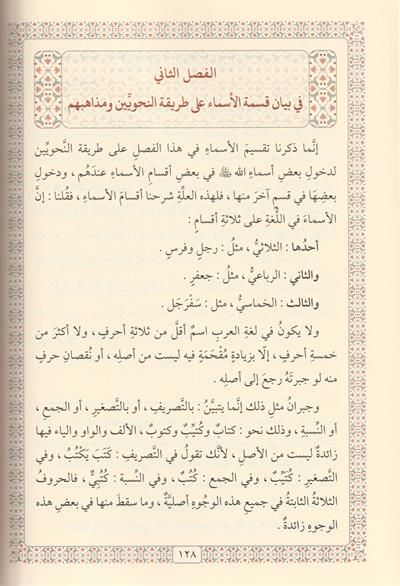 الفصل الثاني
في بيان قسمة الأسماء على طريقة النحويِّين ومذاهبهم
إنَّما ذكرنا تقسيمَ الأسماءِ في هذا الفصلِ على طريقة النَّحويِّين
لدخولِ بعض أسماءِ الله ﷻ في بعض أقسامِ الأسماء عندَهُم ، ودخولِ
بعضِها في قسمٍ آخرَ منها ، فلهذه العلَّةِ شرحنا أقسامَ الأسماءِ ، فقُلنا : إنَّ
الأسماءَ في اللُّغةِ على ثلاثةِ أقسامٍ :
أحدُها : الثلاثيُّ ، مثلُ : رجلٍ وفرسٍ .
والثاني : الرباعيُّ ، مثلُ : جعفرٍ .
والثالث : الخماسيُّ ، مثل : سَفَرْجَل .
ولا يكونُ في لغةِ العربِ اسمٌ أقلَّ من ثلاثةِ أحرفٍ ، ولا أكثرَ من
خمسةِ أحرفٍ ، إلَّا بزيادةٍ مُقْحَمَةٍ فيه ليست من أصلِه ، أو نُقصانِ حرفٍ
منه لو جبرتَهُ رجعَ إلى أصلِه .
وجبرانُ مثلِ ذلك إنَّما يتبيَّنُ : بالتَّصريفِ ، أو بالتَّصغيرِ ، أو الجمعِ ،
أو النِّسبةِ ، وذلك نحو : كتابٌ وكُتيِّبٌ وكتوبٌ ، الألف والواو والياء فيها
زائدةٌ ليست من الأصلِ ، لأنَّك تقولُ في التَّصريفِ : كَتَبَ يَكْتُبُ ، وفي
التَّصغيرِ : كُتَيِّبٌ ، وفي الجمع : كُتُبٌ ، وفي النِّسبة : كُتُبيٌّ ، فالحروفُ
الثَّلاثةُ الثابتةُ في جميعِ هذه الوُجوهِ أصليَّةٌ ، وما سقطَ منها في بعضِ هذه
الوجوهِ زائدةٌ .
١٢٨